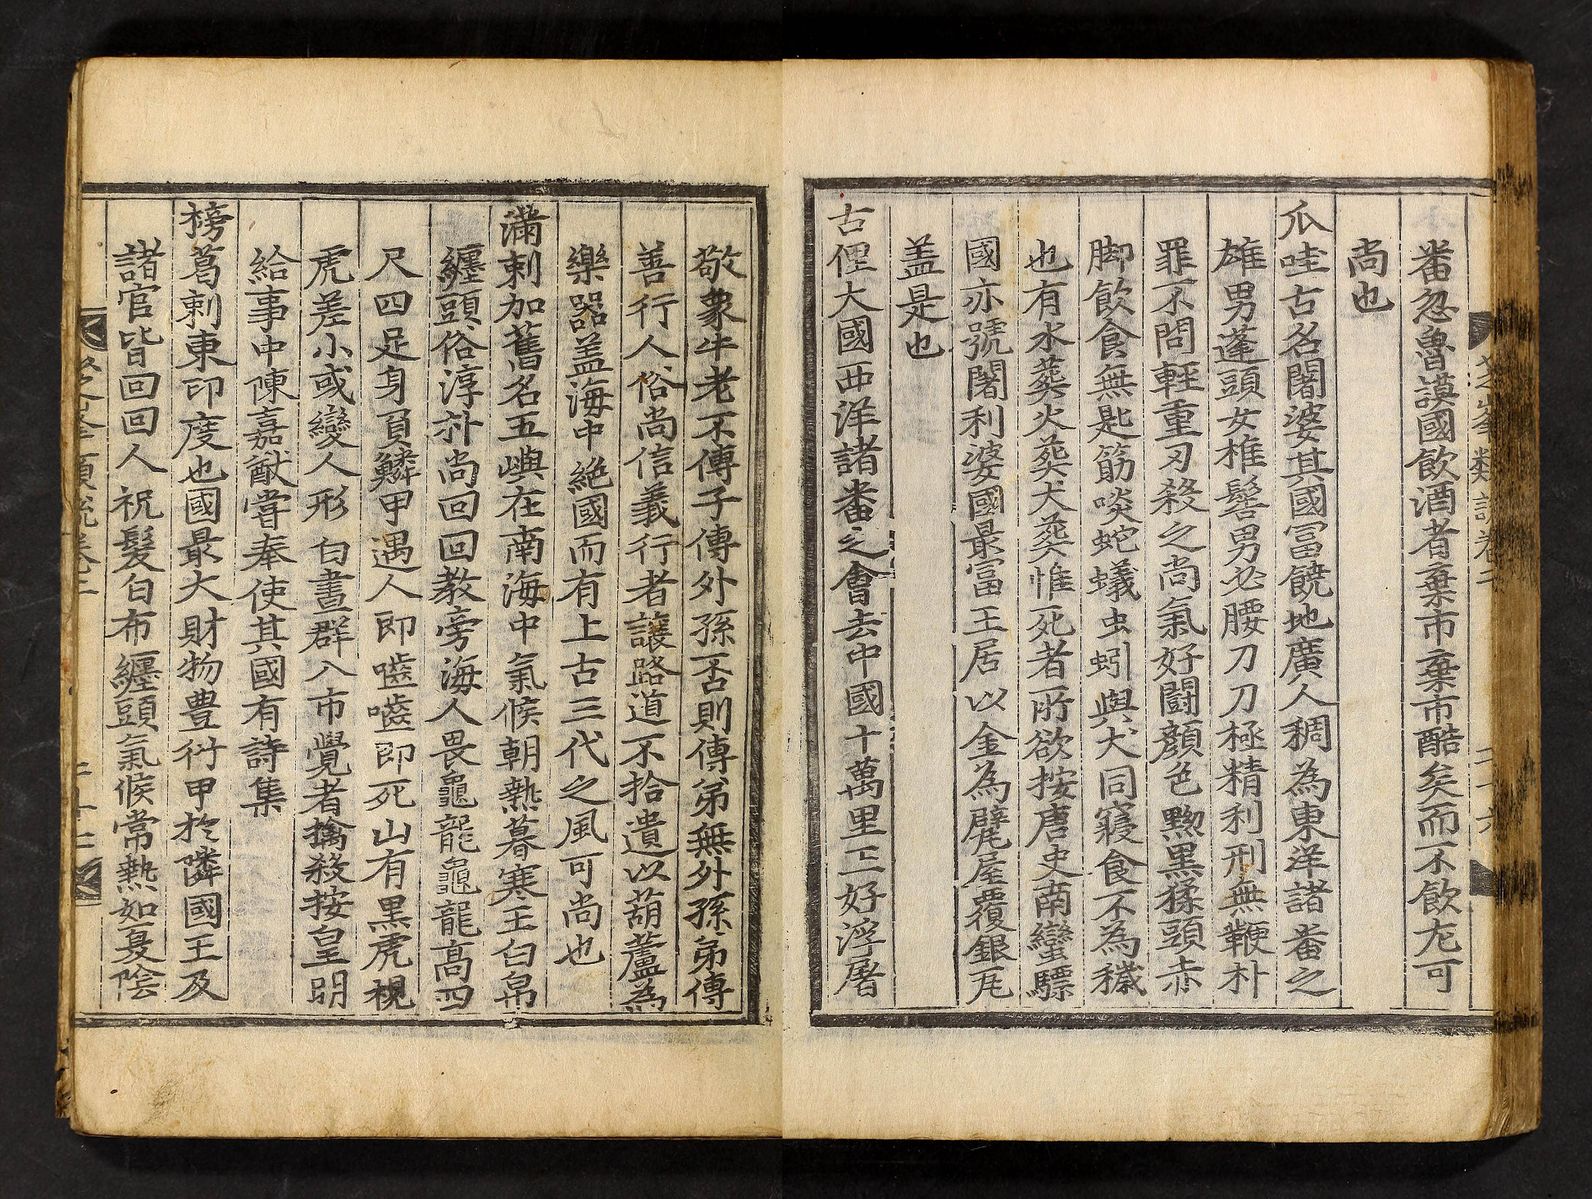 番忽魯謨國飮酒者棄市棄市酷矣而不飮尤可
尚也
爪哇古名闍婆其國冨饒地廣人稠為東洋諸番之
雄男蓬頭女椎髻男必腰刀刀極精利刑無鞭朴
罪不問輊重刃殺之尚氣好闘顔色黝黒猱頭赤
脚飮食無匙筯啖蛇蟻虫蚓與犬同寢食不為穢
也有水葬火葬犬葬惟死者所欲按唐史南蠻驃
國亦號闍利婆國最富王居以金為甓屋覆銀瓦
盖是也
古俚大國西洋諸番之會去中國十萬里王好浮屠
敬象牛老不傳子傳外孫否則傳弟無外孫弟傳
善行人俗尚信義行者讓路道不拾遺以葫蘆為
樂器盖海中絶國而有上古三代之風可尚也
滿剌加舊名五嶼在南海中氣候朝熱暮寒王白帛
纏頭俗淳朴尚回回教旁海人畏龜龍龜龍高四
尺四足身負鱗甲遇人即嚙嚙即死山有黒虎視
虎差小或變人形白晝群入市覺者擒殺按皇明
給事中陳嘉猷嘗奉使其國有詩集
榜葛剌東印度也國最大財物豊衍甲於隣國王及
諸官皆回回人祝髮白布纏頭氣候常熱如夏陰
芝峯類説卷二